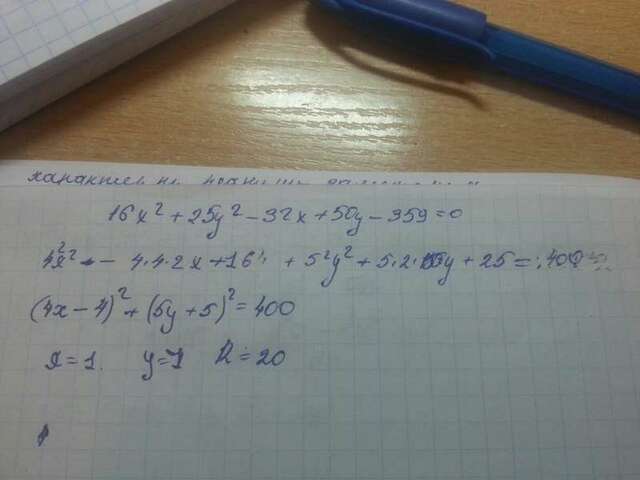 16x² + 25y² - 32x + 50y - 359 = 0
4²x² - 4·4·2x + 16 + 5²y² + 5·2·5y + 25 = 400
(4x - 4)² + (5y + 5)² = 400
x = 1. y = 1 R = 20